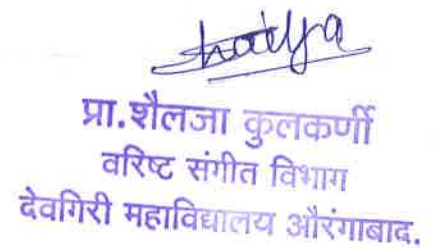 Shailja
प्रा.शैलजा कुलकर्णी
वरिष्ट संगीत विभाग
देवगिरी महाविद्यालय औरंगाबाद.